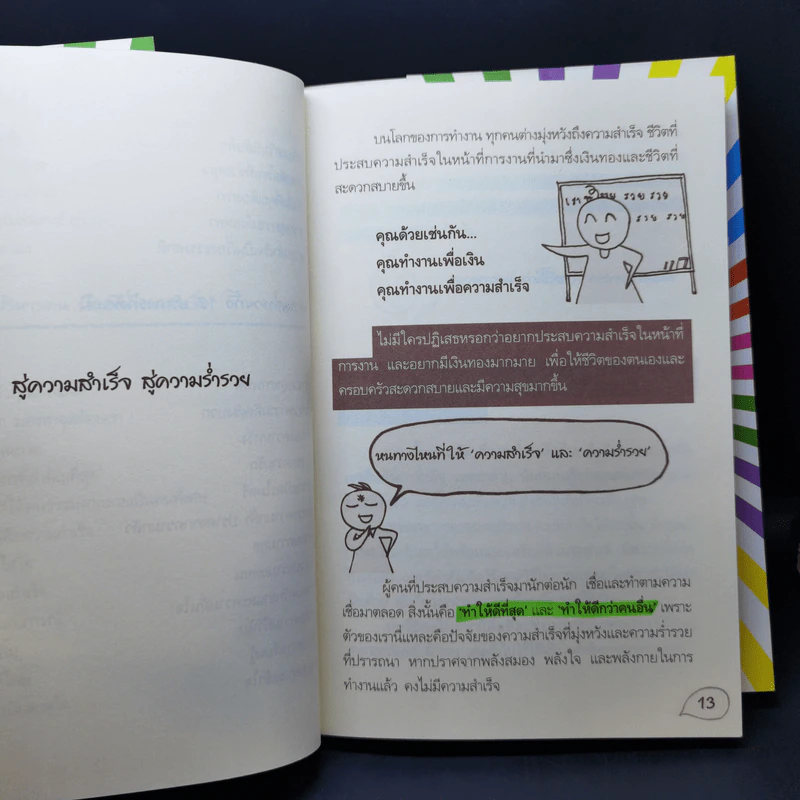 สู่ความสำเร็จ สู่ความร่ำรวย
บนโลกของการทำงาน ทุกคนต่างมุ่งหวังถึงความสำเร็จ ชีวิตที่
ประสบความสำเร็จในหน้าที่การงานที่นำมาซึ่งเงินทองและชีวิตที่
สะดวกสบายขึ้น
รวย รวย
รวย รวย
คุณด้วยเช่นกัน...
คุณทำงานเพื่อเงิน
คุณทำงานเพื่อความสำเร็จ
ไม่มีใครปฏิเสธหรอกว่าอยากประสบความสำเร็จในหน้าที่
การงาน และอยากมีเงินทองมากมาย เพื่อให้ชีวิตของตนเองและ
ครอบครัวสะดวกสบายและมีความสุขมากขึ้น
หนทางไหนที่ให้ 'ความสำเร็จ' และ 'ความร่ำรวย'
ผู้คนที่ประสบความสำเร็จมานักต่อนัก เชื่อและทำตามความ
เชื่อมาตลอด สิ่งนั้นคือ 'ทำให้ดีที่สุด' และ 'ทำให้ดีกว่าคนอื่น' เพราะ
ตัวของเรานี่แหละคือปัจจัยของความสำเร็จที่มุ่งหวังและความร่ำรวย
ที่ปรารถนา หากปราศจากพลังสมอง พลังใจ และพลังกายในการ
ทำงานแล้ว คงไม่มีความสำเร็จ
13